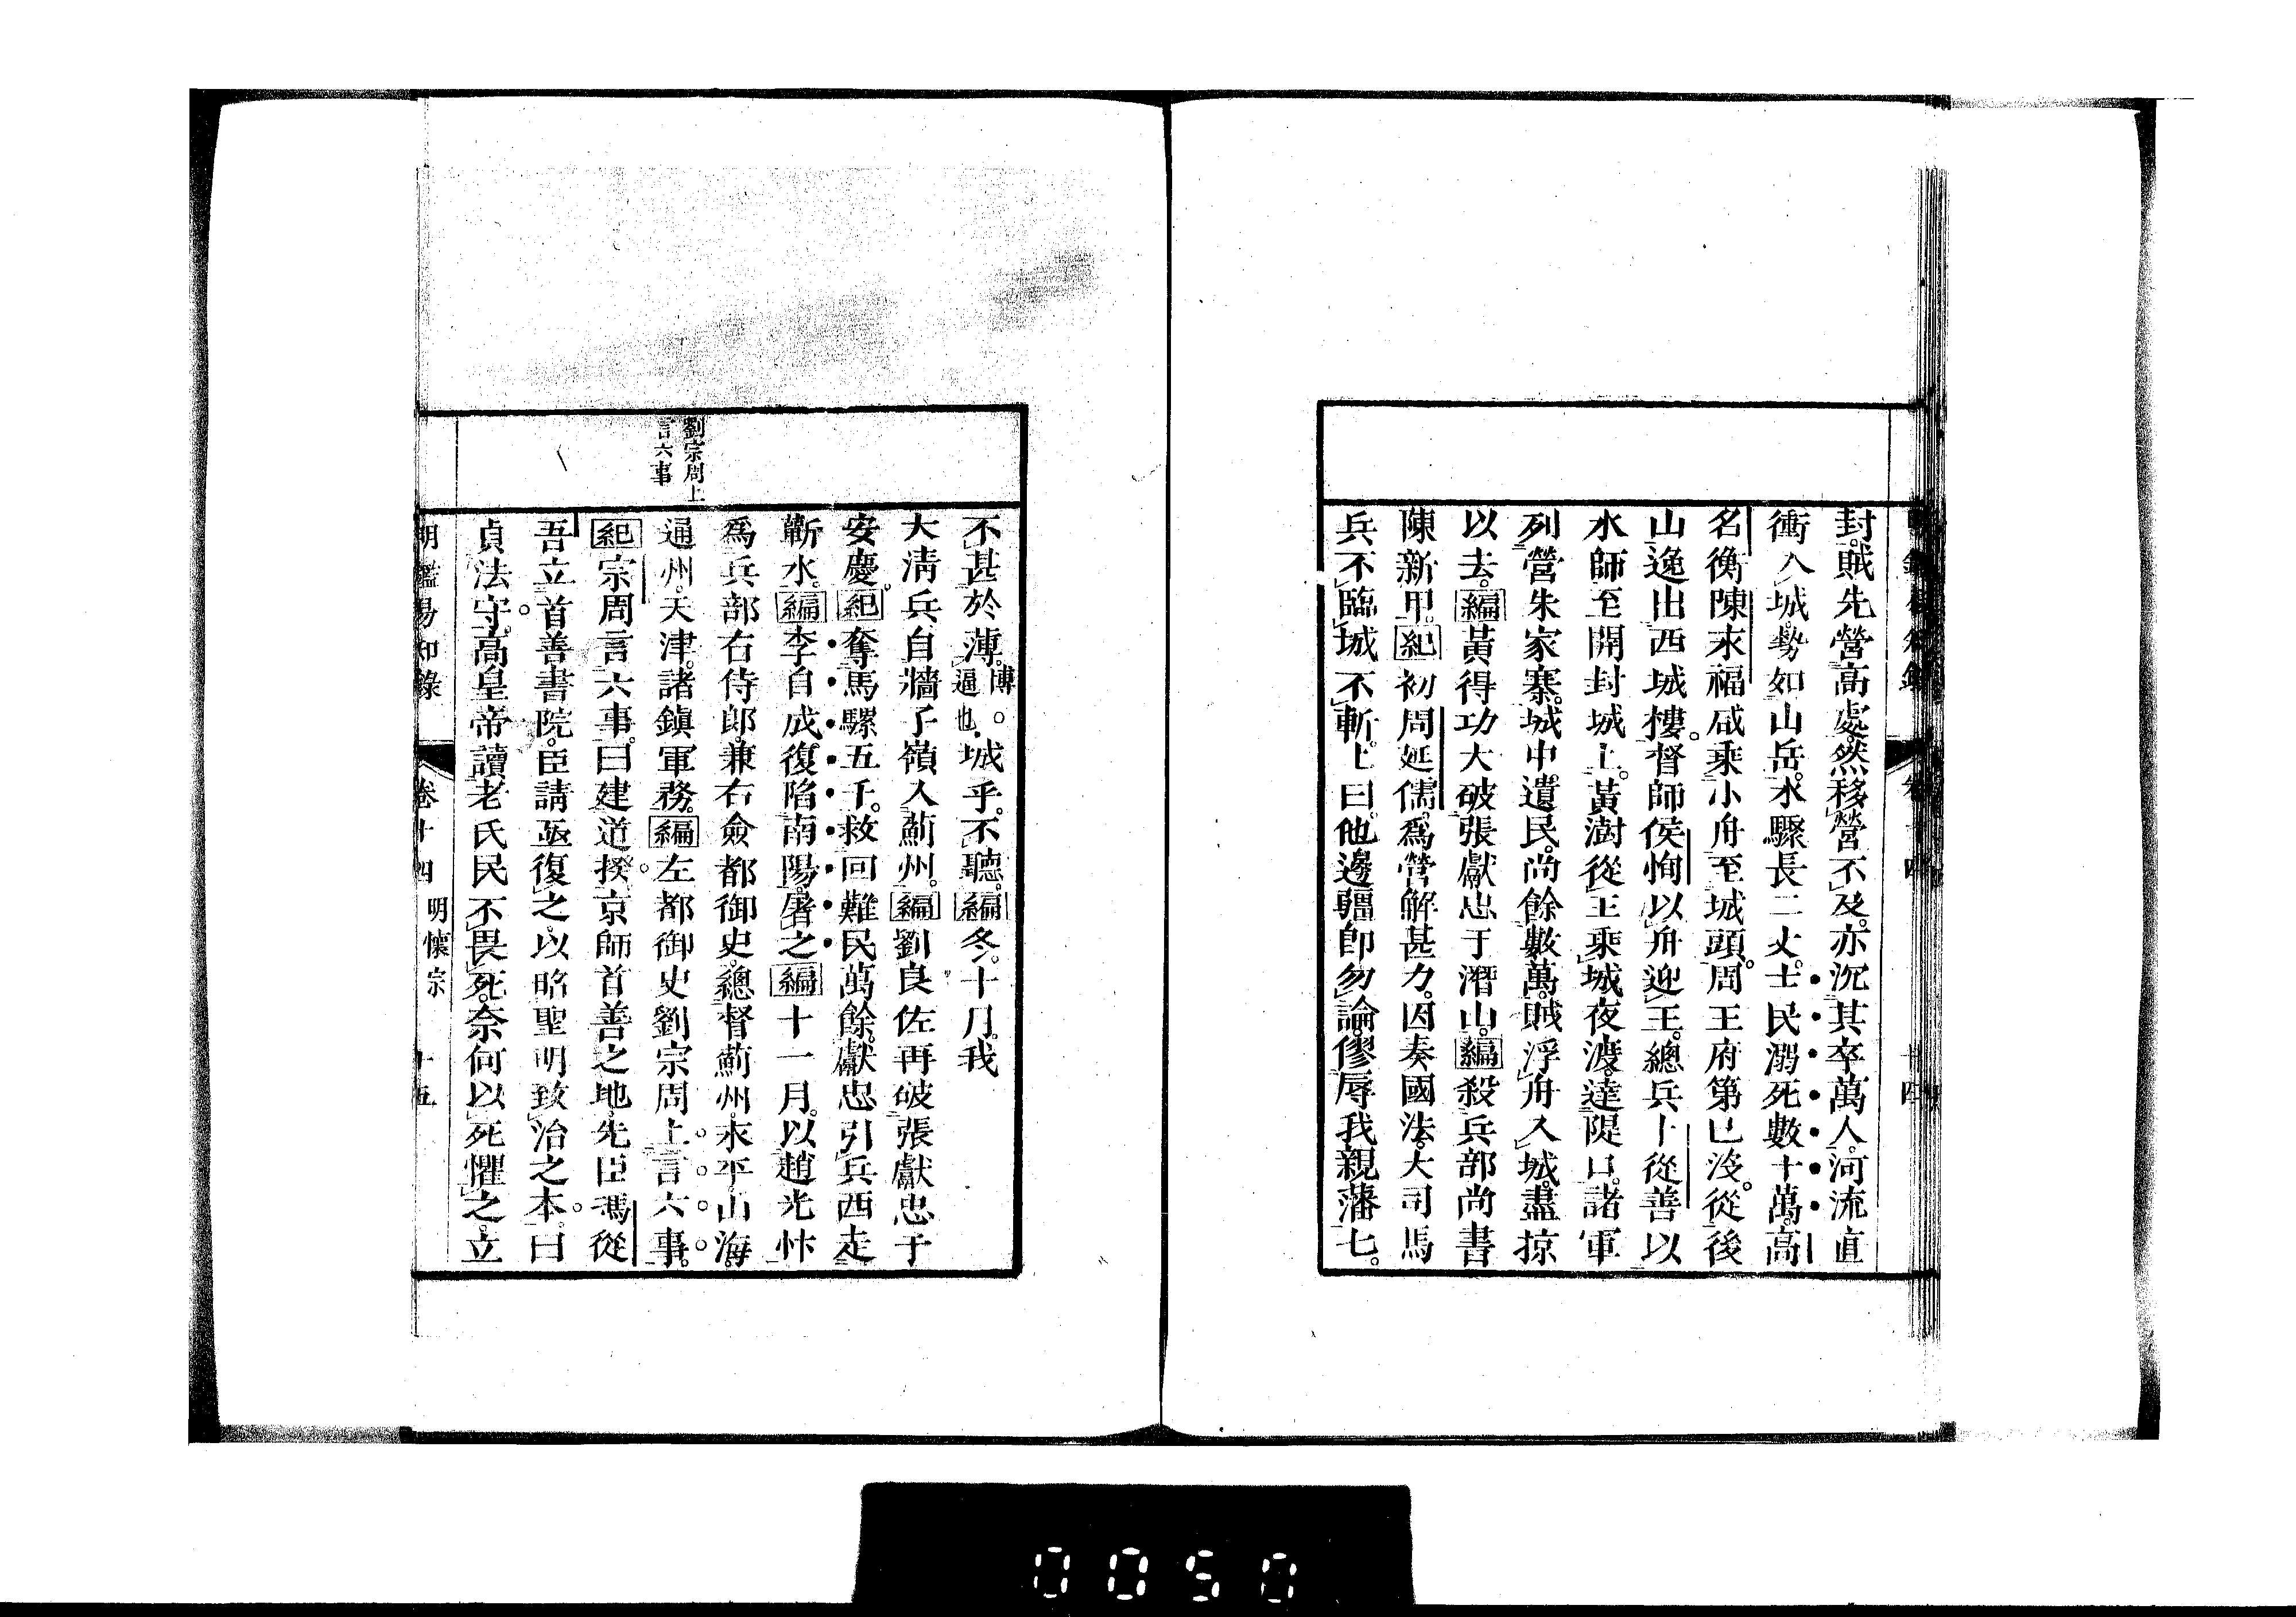 封。賊先營高處。然移營不及。亦沉其卒萬人。河流直
衝入城。勢如山岳。水驟長二丈。士民溺死數十萬。高
名衡陳永福咸乘小舟至城頭。周王府第已沒。從後
山逸出西城樓。督師侯恂以舟迎王。總兵卜從善以
水師至開封城上。黃澍從王乘城夜渡。達隄口。諸軍
列營朱家寨。城中遺民尚餘數萬。賊浮舟入城。盡掠
以去。編黃得功大破張獻忠于潛山。編殺兵部尚書
陳新甲。紀初周延儒。爲營解甚力。因奏國法。大司馬
兵不臨城不斬。上曰。他邊疆卽勿論。僇辱我親藩七。
不甚於薄。博。逼也。城乎。不聽。編冬。十月。我
大淸兵自牆子嶺入薊州。編劉良佐再破張獻忠于
安慶。紀奪馬騾五千。救回難民萬餘。獻忠引兵西走
蘄水。編李自成復陷南陽。屠之編十一月。以趙光忭
爲兵部右侍郎。兼右僉都御史。總督薊州。永平。山海。
通州。天津。諸鎭軍務。編左都御史劉宗周上言六事。
劉宗周上
言六事
紀宗周言六事。曰建道揆。京師首善之地。先臣馮從
吾立首善書院。臣請亟復之。以昭聖明致治之本。曰
貞法守。高皇帝讀老氏民不畏死。奈何以死懼之。立
明鑑易知錄 卷十四 明懷宗 十五
0050